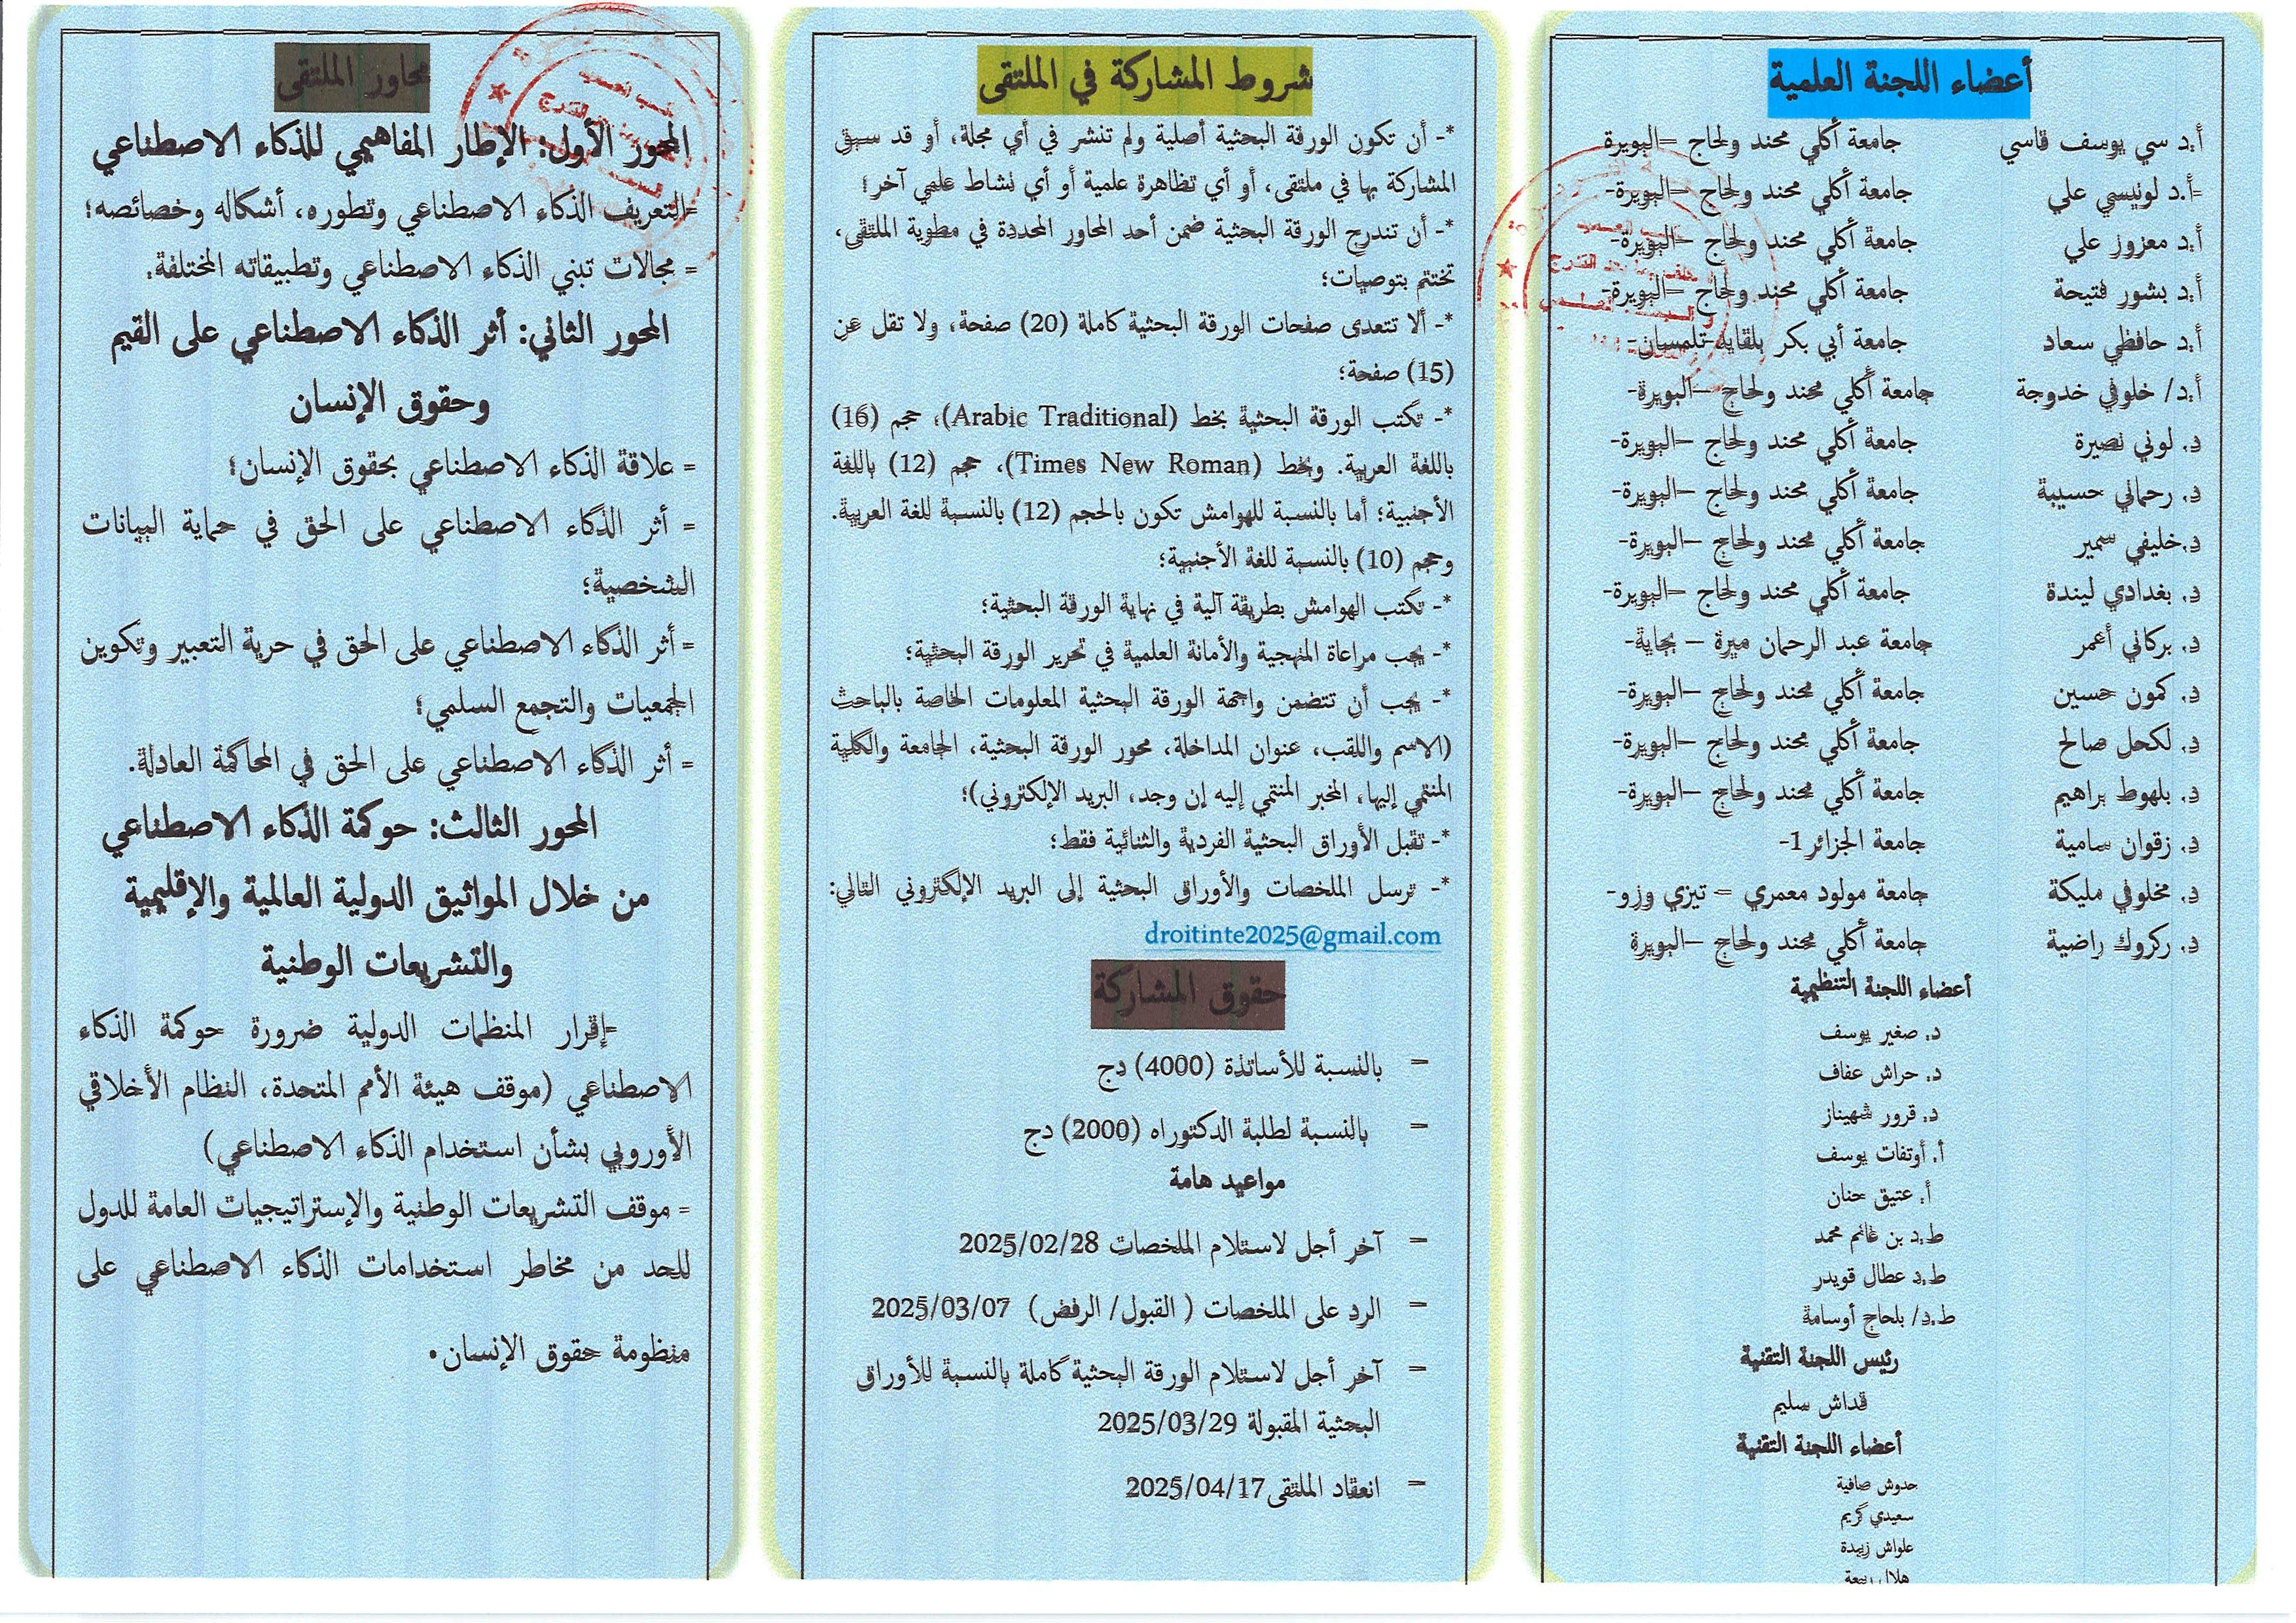 أعضاء اللجنة العلمية
أ.د سي يوسف قاسي جامعة أكلي محند ولحاج –البويرة
-أ.د لونيسي علي جامعة أكلي محند ولحاج –البويرة-
أ.د معزوز علي جامعة أكلي محند ولحاج –البويرة-
أ.د بشور فتيحة جامعة أكلي محند ولحاج –البويرة-
أ.د حافظي سعاد جامعة أبي بكر بلقايد-تلمسان-
أ.د/ خلوفي خدوجة جامعة أكلي محند ولحاج –البويرة-
د. لوني نصيرة جامعة أكلي محند ولحاج –البويرة-
د. رحماني حسيبة جامعة أكلي محند ولحاج –البويرة-
د.خليفي سمير جامعة أكلي محند ولحاج –البويرة-
د. بغدادي ليندة جامعة أكلي محند ولحاج –البويرة-
د. بركاني أعمر جامعة عبد الرحمان ميرة – بجاية-
د. كمون حسين جامعة أكلي محند ولحاج –البويرة-
د. لكحل صالح جامعة أكلي محند ولحاج –البويرة-
د. بلهوط براهيم جامعة أكلي محند ولحاج –البويرة-
د. زقوان سامية جامعة الجزائر 1-
د. مخلوفي مليكة جامعة مولود معمري – تيزي وزو-
د. ركروك راضية جامعة أكلي محند ولحاج –البويرة
أعضاء اللجنة التنظيمية
د. صغير يوسف
د. حراش عفاف
د. قرور شهيناز
أ. أوتفات يوسف
أ. عتيق حنان
ط.د بن غانم محمد
ط.د عطال قويدر
ط.د/ بلحاج أوسامة
رئيس اللجنة التقنية
قداش سليم
أعضاء اللجنة التقنية
حدوش صافية
سعيدي كريم
علواش زبيدة
هلال ربيعة
شروط المشاركة في الملتقى
*- أن تكون الورقة البحثية أصلية ولم تنشر في أي مجلة، أو قد سبق
المشاركة بها في ملتقى، أو أي تظاهرة علمية أو أي نشاط علمي آخر؛
*- أن تندرج الورقة البحثية ضمن أحد المحاور المحددة في مطوية الملتقى،
تختتم بتوصيات؛
*- ألا تتعدى صفحات الورقة البحثية كاملة (20) صفحة، ولا تقل عن
(15) صفحة؛
*- تكتب الورقة البحثية بخط (Arabic Traditional)، حجم (16)
باللغة العربية. وبخط (Times New Roman)، حجم (12) باللغة
الأجنبية؛ أما بالنسبة للهوامش تكون بالحجم (12) بالنسبة للغة العربية.
وحجم (10) بالنسبة للغة الأجنبية؛
*- تكتب الهوامش بطريقة آلية في نهاية الورقة البحثية؛
*- يجب مراعاة المنهجية والأمانة العلمية في تحرير الورقة البحثية؛
*- يجب أن تتضمن واجهة الورقة البحثية المعلومات الخاصة بالباحث
(الاسم واللقب، عنوان المداخلة، محور الورقة البحثية، الجامعة والكلية
المنتمي إليها، المخبر المنتمي إليه إن وجد، البريد الإلكتروني)؛
*- تقبل الأوراق البحثية الفردية والثنائية فقط؛
*- ترسل الملخصات والأوراق البحثية إلى البريد الإلكتروني التالي:
droitinte2025@gmail.com
حقوق المشاركة
– بالنسبة للأساتذة (4000) دج
– بالنسبة لطلبة الدكتوراه (2000) دج
مواعيد هامة
– آخر أجل لاستلام الملخصات 2025/02/28
– الرد على الملخصات ( القبول/ الرفض) 2025/03/07
– آخر أجل لاستلام الورقة البحثية كاملة بالنسبة للأوراق
البحثية المقبولة 2025/03/29
– انعقاد الملتقى2025/04/17
محاور الملتقى
المحور الأول: الإطار المفاهيمي للذكاء الاصطناعي
-التعريف الذكاء الاصطناعي وتطوره، أشكاله وخصائصه؛
- مجالات تبني الذكاء الاصطناعي وتطبيقاته المختلفة.
المحور الثاني: أثر الذكاء الاصطناعي على القيم
وحقوق الإنسان
- علاقة الذكاء الاصطناعي بحقوق الإنسان؛
- أثر الذكاء الاصطناعي على الحق في حماية البيانات
الشخصية؛
- أثر الذكاء الاصطناعي على الحق في حرية التعبير وتكوين
الجمعيات والتجمع السلمي؛
- أثر الذكاء الاصطناعي على الحق في المحاكمة العادلة.
المحور الثالث: حوكمة الذكاء الاصطناعي
من خلال المواثيق الدولية العالمية والإقليمية
والتشريعات الوطنية
-إقرار المنظمات الدولية ضرورة حوكمة الذكاء
الاصطناعي (موقف هيئة الأمم المتحدة، النظام الأخلاقي
الأوروبي بشأن استخدام الذكاء الاصطناعي)
- موقف التشريعات الوطنية والإستراتيجيات العامة للدول
للحد من مخاطر استخدامات الذكاء الاصطناعي على
منظومة حقوق الإنسان.